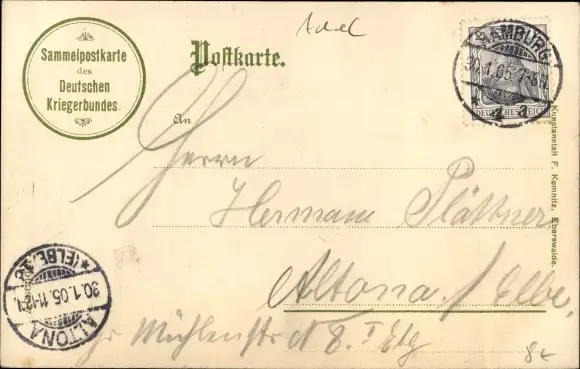 Adel
Sammelpostkarte
des
Deutschen
Kriegerbundes.
Postkarte.
HAMBURG
30.1.05.7-8N
DEUTSCHES REICH
An
Herrn
Hermann Plättner
Altona./Elbe.
Gr Mühlenstr N 8. I Etg
ALTONA
(ELBE)
30.1.05.11-12
Kunstanstalt F. Kemnitz, Eberswalde.
8x